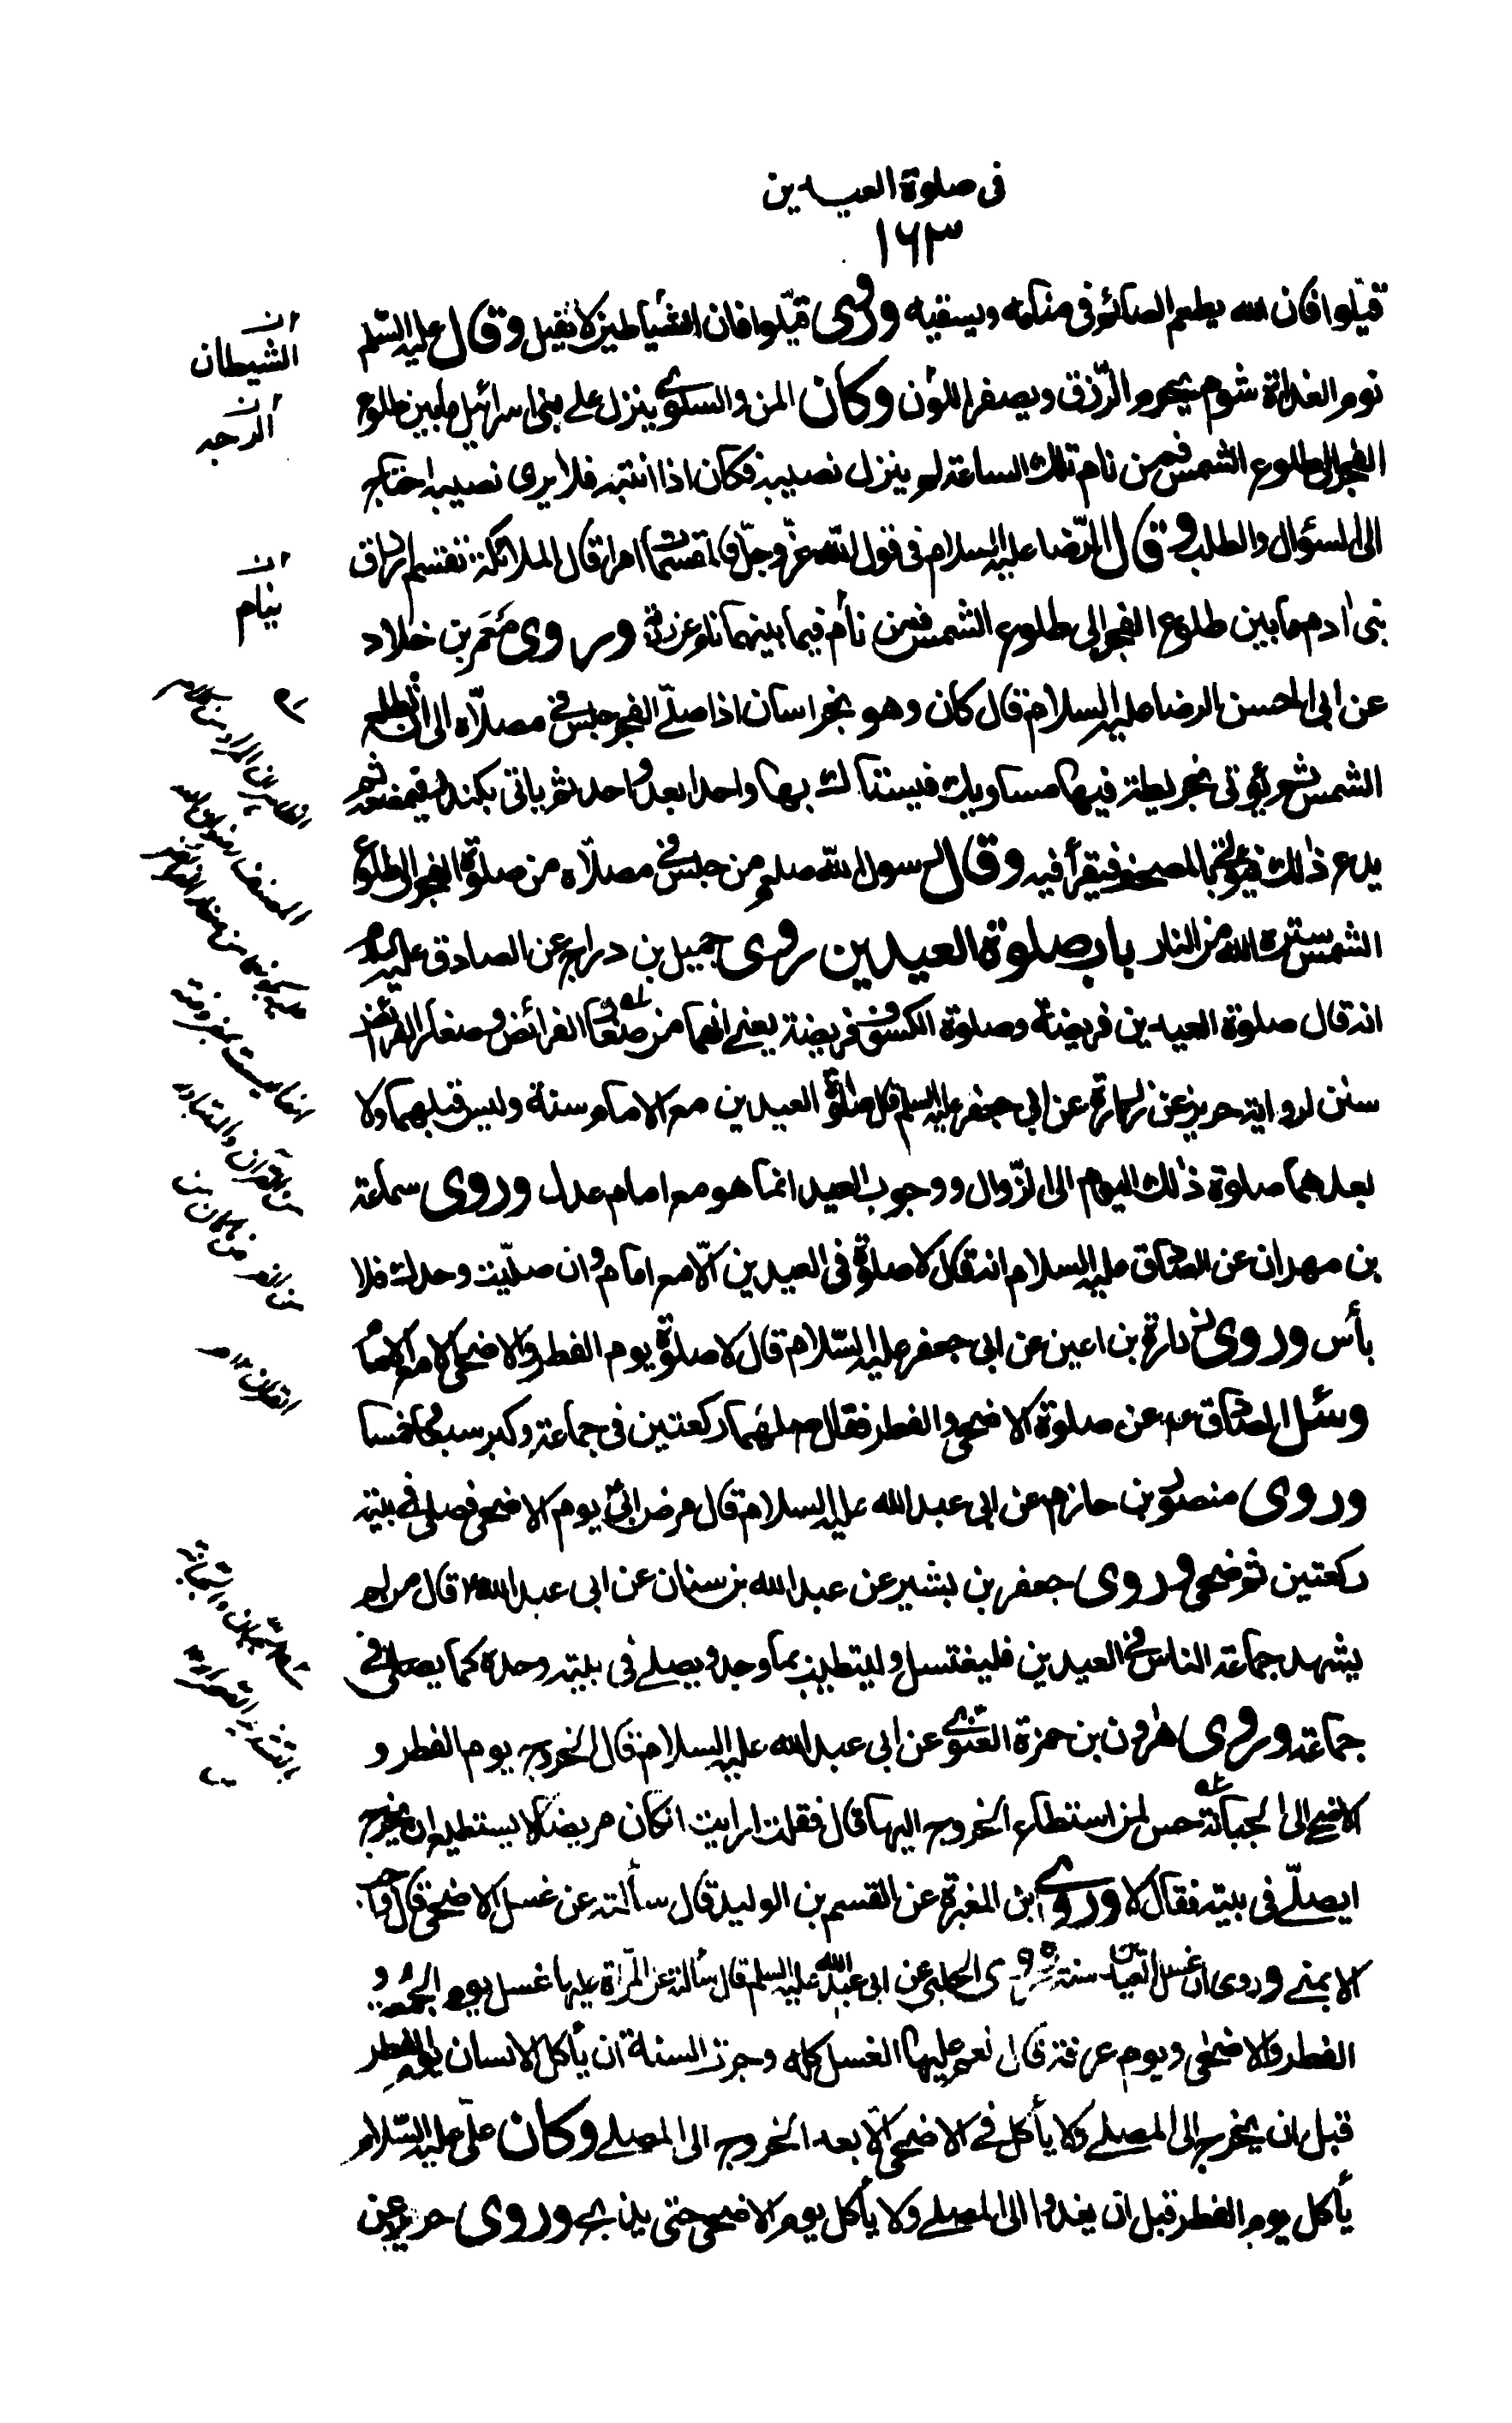 فى صلوة العيدين
١٦٣
قيّلوا فان الله يطعم الصائم فى منامه ويسقيه وروى قيّلوا فان الشياطين لا تقيل وقال عليه السّلم
نوم الغداة شوم يحرم الرّزق ويصفر اللون وكان المن والسلوى ينزل على بنى اسرائيل ما بين طلوع
الفجر الى طلوع الشمس فمن نام تلك الساعة لم ينزل نصيبه فكان اذا انتبه فلا يرى نصيبه احتاج
الى السؤال والطلب وقال الرّضا عليه السلام فى قول الله عزّ وجلّ فالمقسّمات امرا قال الملائكة تقسم ارزاق
بنى ادم ما بين طلوع الفجر الى طلوع الشمس فمن نام فيما بينهما نام عن رزقه وروى مُعمَر بن خلاد
عن ابى الحسن الرضا عليه السلام قال كان وهو بخراسان اذا صلّى الفجر جلس فى مصلّاه الى ان تطلع
الشمس ثم يؤتى بخريطة فيها مساويك فيستاك بها واحدا بعد واحد ثم ياتى بكندر فيمضغه ثم
يدع ذلك فيؤتى بالمصحف فيقرأ فيه وقال رسول الله صلعم من جلس فى مصلّاه من صلوة الفجر الى طلوع
الشمس ستره الله من النار باب صلوة العيدين روى جميل بن دراج عن الصادق عليه السلام
انه قال صلوة العيدين فريضة وصلوة الكسوف فريضة يعنى انهما من صغار الفرائض وصغار الفرائض
سنن لرواية حريز عن زرارة عن ابى جعفر عليه السلم قال صلوة العيدين مع الامام سنة وليس قبلهما ولا
بعدهما صلوة ذلك اليوم الى الزّوال ووجوب العيد انما هو مع امام عدل وروى سماعة
بن مهران عن الصادق عليه السلام انه قال لا صلوة فى العيدين الّا مع امام وان صلّيت وحدك فلا
بأس وروى زرارة بن اعين عن ابى جعفر عليه السّلام قال لا صلوة يوم الفطر والاضحى الا مع الامام
وسئل الصادق عه عن صلوة الاضحى والفطر فقال صلهما ركعتين فى جماعة وكبر سبعا وخمسا
وروى منصور بن حازم عن ابى عبد الله عليه السلام قال مرض ابى يوم الاضحى فصلى فى بيته
ركعتين ثم ضحى وروى جعفر بن بشير عن عبد الله بن سنان عن ابى عبد الله ع قال من لم
يشهد جماعة الناس فى العيدين فليغتسل وليتطيب بما وجد ويصلى فى بيته وحده كما يصلى فى
جماعة وروى هرون بن حمزة الغنوى عن ابى عبد الله عليه السلام قال الخروج يوم الفطر و
الاضحى الى الجبانة حسن لمن استطاع الخروج اليها قال فقلت ارايت ان كان مريضا لا يستطيع ان يخرج
ايصلّى فى بيته فقال لا وروى ابن المغيرة عن القسم بن الوليد قال سألته عن غسل الاضحى قال واجب
الا بمنى وروى ان غسل العيدين سنة وروى الحلبى عن ابى عبد الله عليه السلم قال سألته عن المرأة عليها غسل يوم الجمعة و
الفطر والاضحى ويوم عرفة قال نعم عليها الغسل كله وجرت السنة ان يأكل الانسان يوم الفطر
قبل ان يخرج الى المصلى ولا يأكل فى الاضحى الا بعد الخروج الى المصلى وكان علىّ عليه السّلام
يأكل يوم الفطر قبل ان يغدوا الى المصلى ولا يأكل يوم الاضحى حتى يذبح وروى حريز عن
الشيطان
ينام